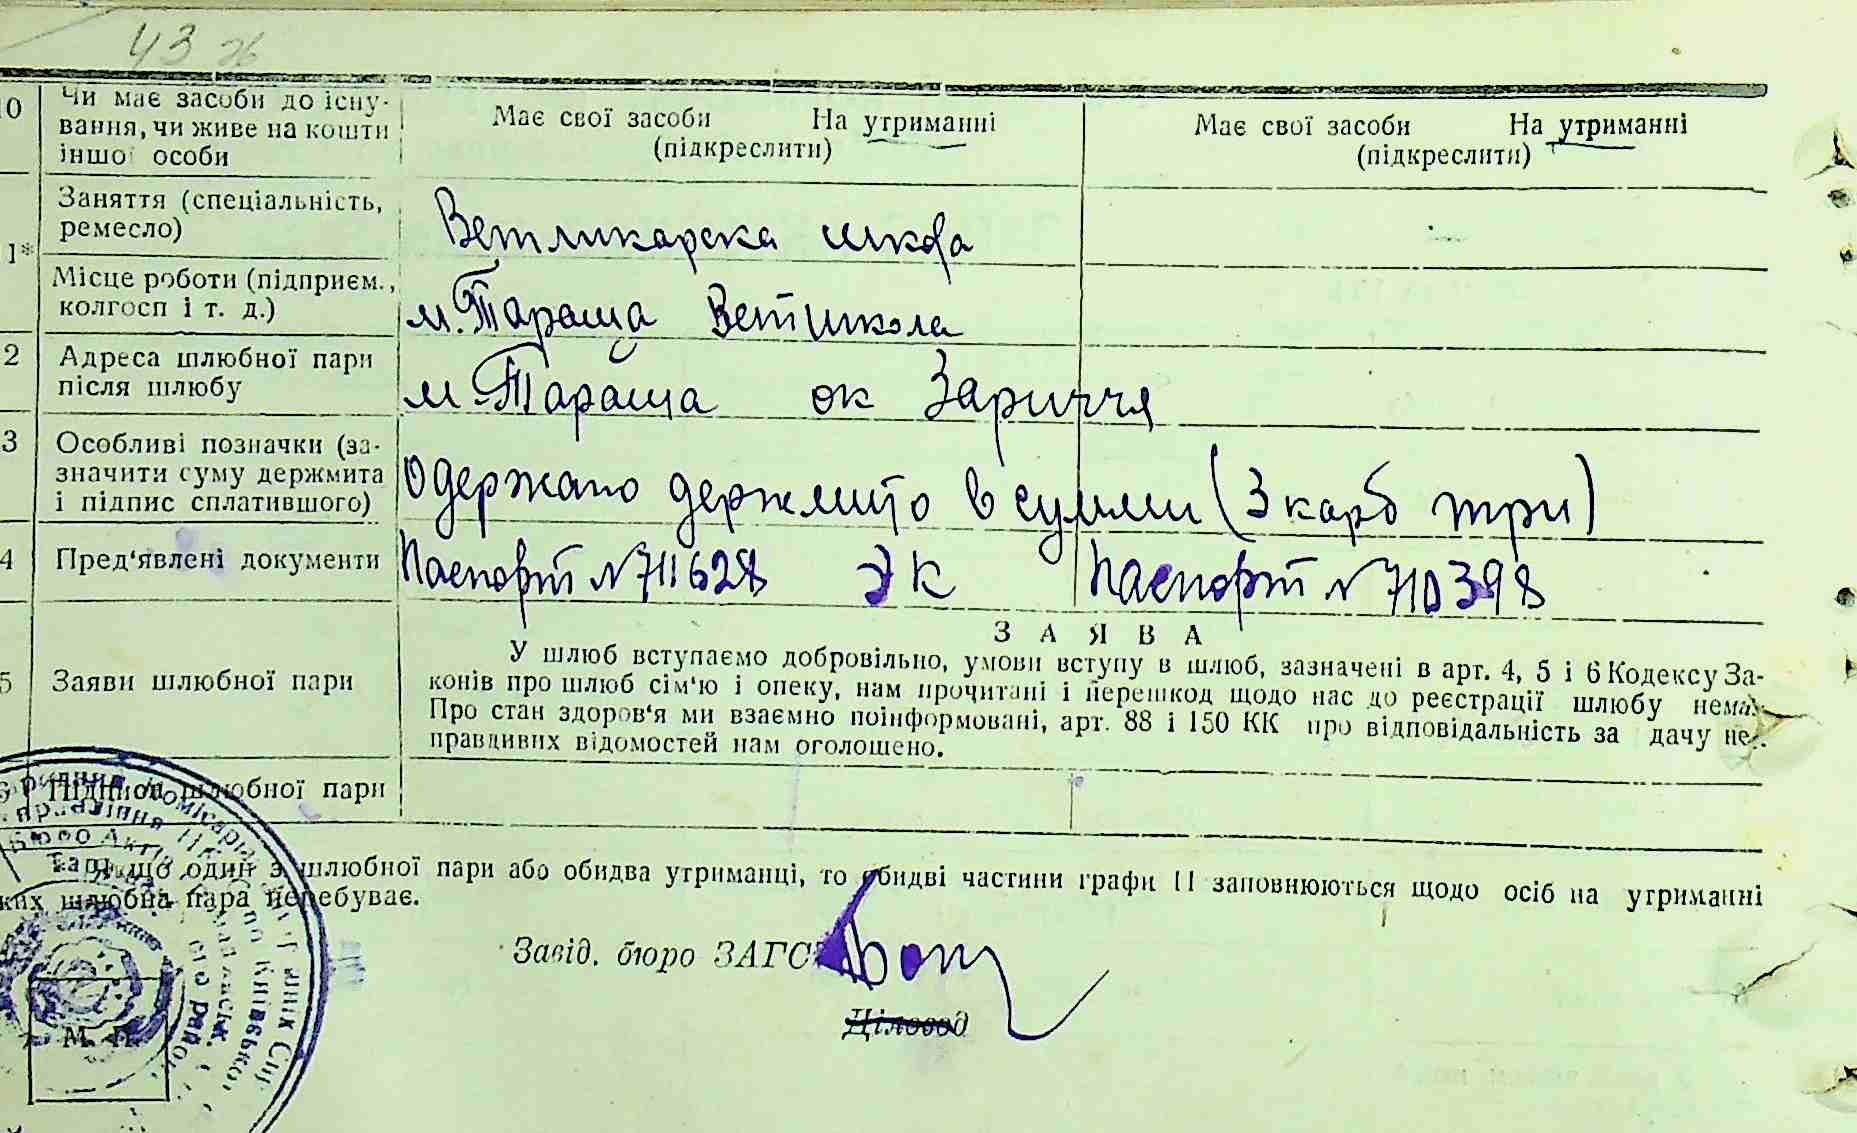 43 зв
10 Чи має засоби до існу- Має свої засоби На утриманні Має свої засоби На утриманні
вання, чи живе на кошти (підкреслити) (підкреслити)
іншої особи
Заняття (спеціальність, Ветликарска школа
ремесло)
1*
Місце роботи (підприєм., м. Тараща Ветшкола
колгосп і т. д.)
2 Адреса шлюбної пари м. Тараща ок Зариччя
після шлюбу
3 Особливі позначки (за- Одержано держмито в сумми (3 карб три)
значити суму держмита
і підпис сплатившого)
4 Пред'явлені документи Паспорт № 711628 ЭК Паспорт № 710398
З А Я В А
5 Заяви шлюбної пари У шлюб вступаємо добровільно, умови вступу в шлюб, зазначені в арт. 4, 5 і 6 Кодексу За-
конів про шлюб сім'ю і опеку, нам прочитані і перешкод щодо нас до реєстрації шлюбу нема.
Про стан здоров'я ми взаємно поінформовані, арт. 88 і 150 КК про відповідальність за дачу не-
правдивих відомостей нам оголошено.
6 Підписи шлюбної пари
Якщо один з шлюбної пари або обидва утриманці, то обидві частини графи 11 заповнюються щодо осіб на утриманні
ких шлюбна пара перебуває.
Завід. бюро ЗАГС
Діловод
М. П.